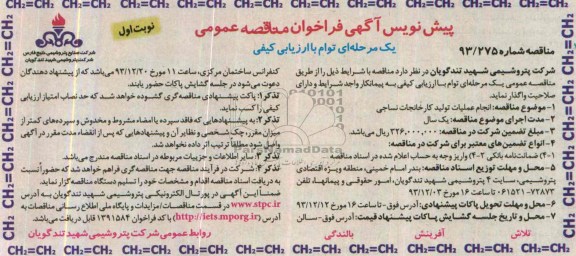 پیش نویس آگهی فراخوان مناقصه عمومی
یک مرحله‌ای توام با ارزیابی کیفی
نوبت اول
شرکت صنایع پتروشیمی خلیج فارس
شرکت پتروشیمی شهید تندگویان
مناقصه شماره ۹۳/۲۷۵
شرکت پتروشیمی شهید تندگویان در نظر دارد مناقصه با شرایط ذیل را از طریق
مناقصه عمومی یک مرحله‌ای توام با ارزیابی کیفی به پیمانکار واجد شرایط و دارای
صلاحیت واگذار نماید.
۱- موضوع مناقصه: انجام عملیات تولید کارخانجات نساجی
۲- مدت اجرای موضوع مناقصه: یک سال
۳- مبلغ تضمین شرکت در مناقصه: ۳۲۶,۰۰۰,۰۰۰ ریال می‌باشد
۴- انواع تضمین های معتبر برای شرکت در مناقصه:
۴-۱) ضمانت‌نامه بانکی ۴-۲) واریز وجه به حساب اعلام شده در اسناد مناقصه
۵- محل و مهلت توزیع اسناد مناقصه: بندر امام خمینی، منطقه ویژه اقتصادی
پتروشیمی، سایت ۴ پتروشیمی شهید تندگویان، امور حقوقی و پیمانها، تلفن
۰۶۱۵۲۱-۷۲۸۷۲ تا ساعت ۱۶ مورخ ۹۳/۱۲/۰۲
۶- محل و مهلت تحویل پاکات پیشنهادی: آدرس فوق - تا ساعت ۱۶ مورخ ۹۳/۱۲/۱۲
۷- محل و تاریخ جلسه گشایش پاکات پیشنهاد قیمت: آدرس فوق - سالن
کنفرانس ساختمان مرکزی، ساعت ۱۱ مورخ ۹۳/۱۲/۲۰ می‌باشد که از پیشنهاد دهندگان
دعوت می‌شود در جلسه گشایش پاکات حضور یابند.
تذکر۱: پاکت پیشنهادی مناقصه گری گشوده خواهد شد که حد نصاب امتیاز ارزیابی
کیفی را کسب نماید.
تذکر۲: به پیشنهادهایی که فاقد سپرده یا امضاء مشروط و مخدوش و سپرده‌های کمتر از
میزان مقرر، چک شخصی و نظایر آن و پیشنهادهایی که پس از انقضاء مدت مقرر در آگهی
واصل شود مطلقاً ترتیب اثر داده نخواهد شد.
تذکر۳: سایر اطلاعات و جزییات مربوطه در اسناد مناقصه مندرج می‌باشد.
تذکر۴: شرکت در فرآیند مناقصه جهت مناقصه گری فراهم خواهد شد که حضوراً نسبت
به دریافت اسناد مناقصه اقدام و مشخصات خود را تسلیم دستگاه مناقصه گزار نماید.
ضمناً این آگهی در پورتال الکترونیکی پتروشیمی شهید تندگویان به آدرس
www.stpc.ir در قسمت مناقصات/مزایدات و پایگاه ملی اطلاع رسانی مناقصات به
آدرس (http://iets.mporg.ir) با کد فراخوان ۱۳۹۱۵۸۴ قابل دریافت می‌باشد.
روابط عمومی شرکت پتروشیمی شهید تندگویان
تلاش آفرینش بالندگی